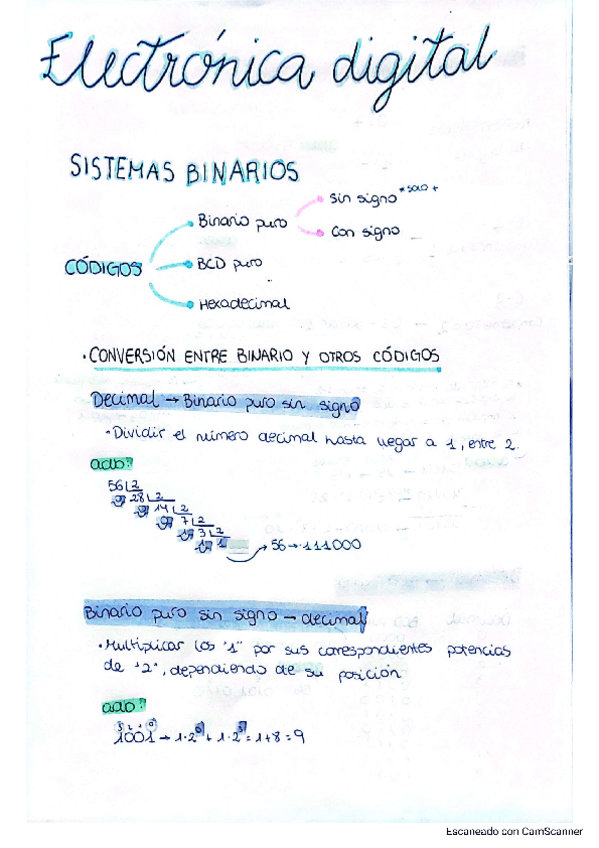 Electrónica digital
SISTEMAS BINARIOS
CÓDIGOS
Binario puro
Sin signo *SOLO +
Con signo
BCD puro
Hexadecimal
· CONVERSIÓN ENTRE BINARIO Y OTROS CÓDIGOS
Decimal → Binario puro sin signo
· Dividir el número decimal hasta llegar a 1, entre 2.
56 2
0 28 2
0 14 2
0 7 2
1 3 2
1 1
56 → 111000
Binario puro sin signo → decimal
· Multiplicar los "1" por sus correspondientes potencias
de "2", dependiendo de su posición
3 2 1 0
1001 → 1·2⁰ + 1·2³ = 1+8 = 9
Escaneado con CamScanner